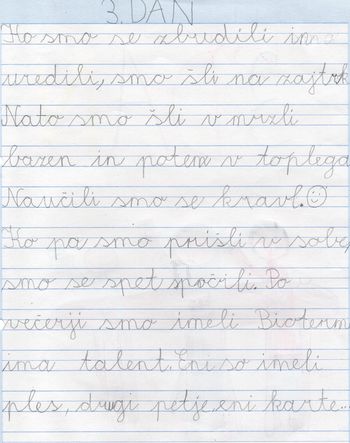 3. DAN
Ko smo se zbudili in
uredili, smo šli na zajtrk
Nato smo šli v mrzli
bazen in potem v toplega
Naučili smo se kravl.☺
Ko pa smo prišli v sobe,
smo se spet spočili. Po
večerji smo imeli Bioterm
ima talent. Eni so imeli
ples, drugi petje, eni karte...